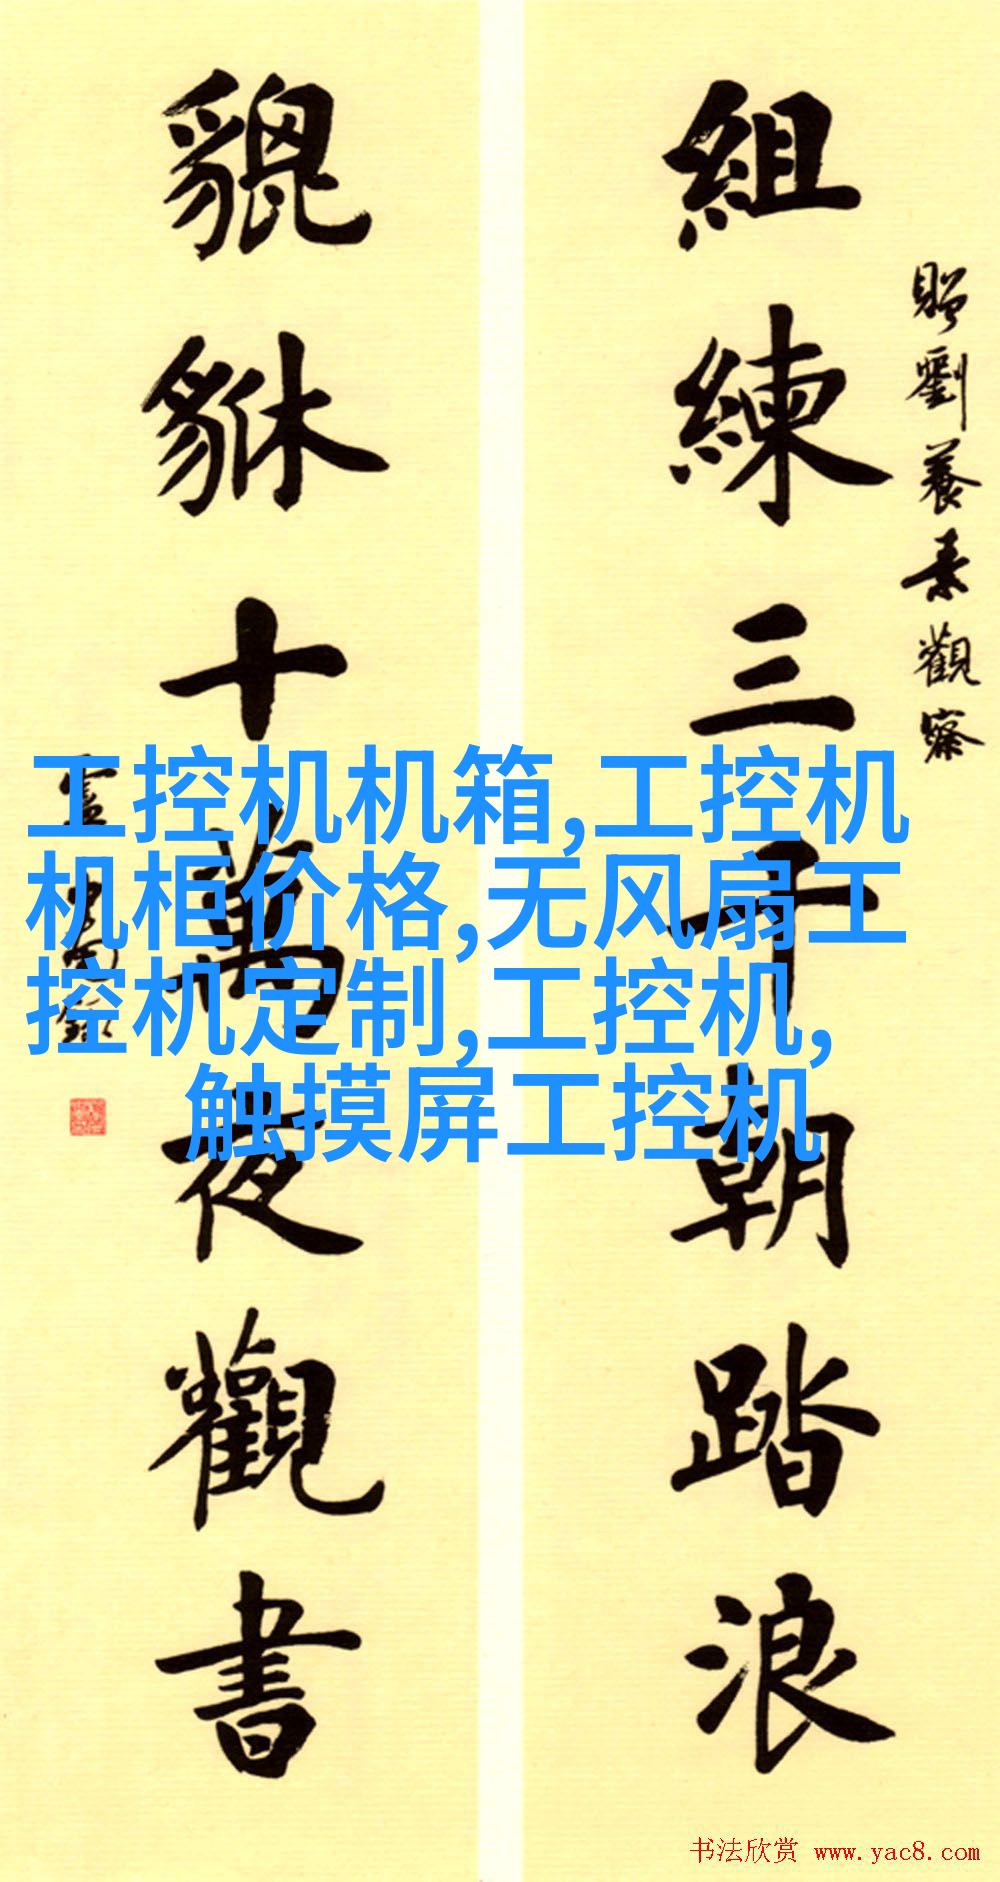 贈劉養素觀察
組練三千朝踏浪
貔貅十萬夜觀書
工控机机箱,工控机
机柜价格,无风扇工
控机定制,工控机,
触摸屏工控机
书法欣赏 www.yac8.com